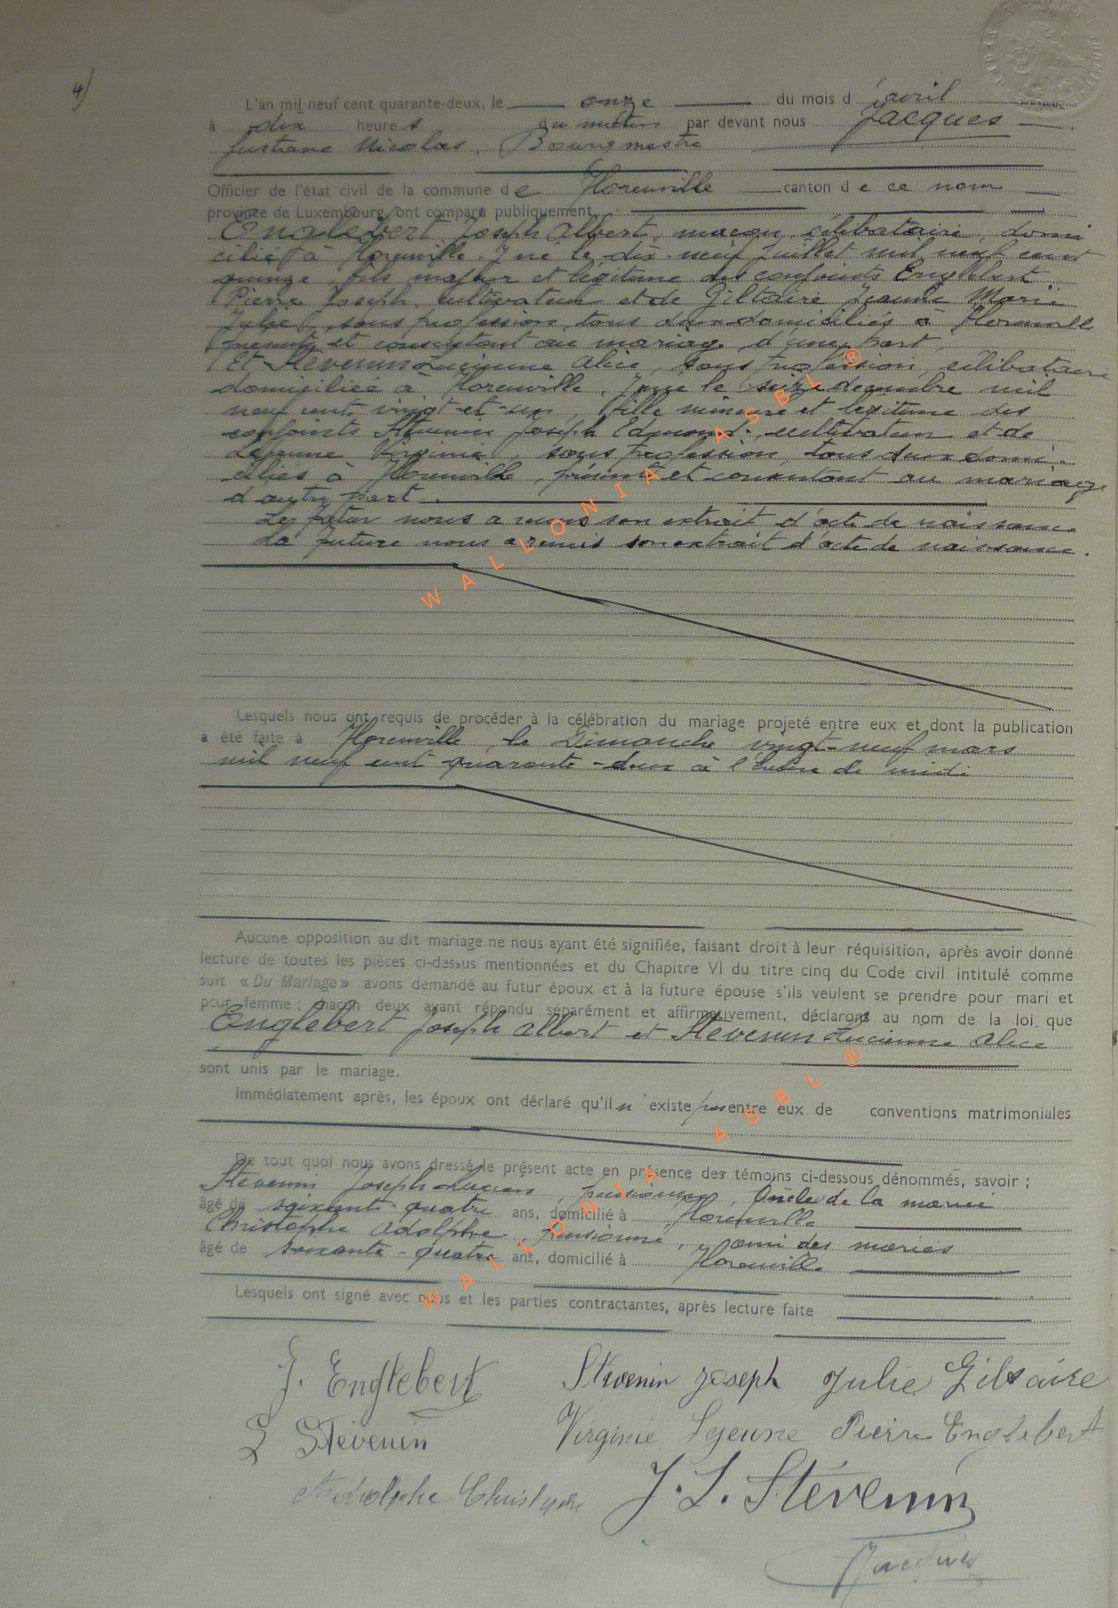 4)
L'an mil neuf cent quarante-deux, le onze du mois d'avril
à dix heures du matin par devant nous Jacques
Gustave Nicolas, Bourgmestre
Officier de l'état civil de la commune de Florenville canton de ce nom
province de Luxembourg, ont comparu publiquement
Englebert Joseph Albert, maçon, célibataire, domi
cilié à Florenville. Jné le dix-neuf juillet mil neuf cent
quinze, fils majeur et légitime des conjoints Englebert
Pierre Joseph, cultivateur et de Giltaire Jeanne Marie
Julie, sans profession, tous deux domiciliés à Florenville
présents et consentant au mariage, d'une part,
Et Stevenin Lucienne Alice, sans profession, célibataire
domiciliée à Florenville. Jnée le seize décembre mil
neuf cent vingt-et-un, fille mineure et légitime des
conjoints Stevenin Joseph Edmond, cultivateur et de
Lejeune Virginie, sans profession, tous deux domi-
ciliés à Florenville, présents et consentant au mariage
d'autre part.
Le futur nous a remis son extrait d'acte de naissance.
La future nous a remis son extrait d'acte de naissance.
Lesquels nous ont requis de procéder à la célébration du mariage projeté entre eux et dont la publication
a été faite à Florenville, le Dimanche vingt-neuf mars
mil neuf cent quarante-deux à l'heure de midi
Aucune opposition au dit mariage ne nous ayant été signifiée, faisant droit à leur réquisition, après avoir donné
lecture de toutes les pièces ci-dessus mentionnées et du Chapitre VI du titre cinq du Code civil intitulé comme
suit « Du Mariage » avons demandé au futur époux et à la future épouse s'ils veulent se prendre pour mari et
pour femme ; chacun deux ayant répondu séparément et affirmativement, déclarons au nom de la loi que
Englebert Joseph Albert et Stevenin Lucienne Alice
sont unis par le mariage.
Immédiatement après, les époux ont déclaré qu'il n'existe pas entre eux de conventions matrimoniales
De tout quoi nous avons dressé le présent acte en présence des témoins ci-dessous dénommés, savoir ;
Stevenin Joseph Lucien, pensionné, Oncle de la mariée
âgé de soixante-quatre ans, domicilié à Florenville
Christophe Adolphe, pensionné, ami des mariés
âgé de soixante-quatre ans, domicilié à Florenville
Lesquels ont signé avec nous et les parties contractantes, après lecture faite
J. Englebert Stevenin Joseph Julie Giltaire
L Stevenin Virginie Lejeune Pierre Englebert
Adolphe Christophe J. L. Stévenin
Jacques
WALLONIA ASBL ®
WALLONIA ASBL ®